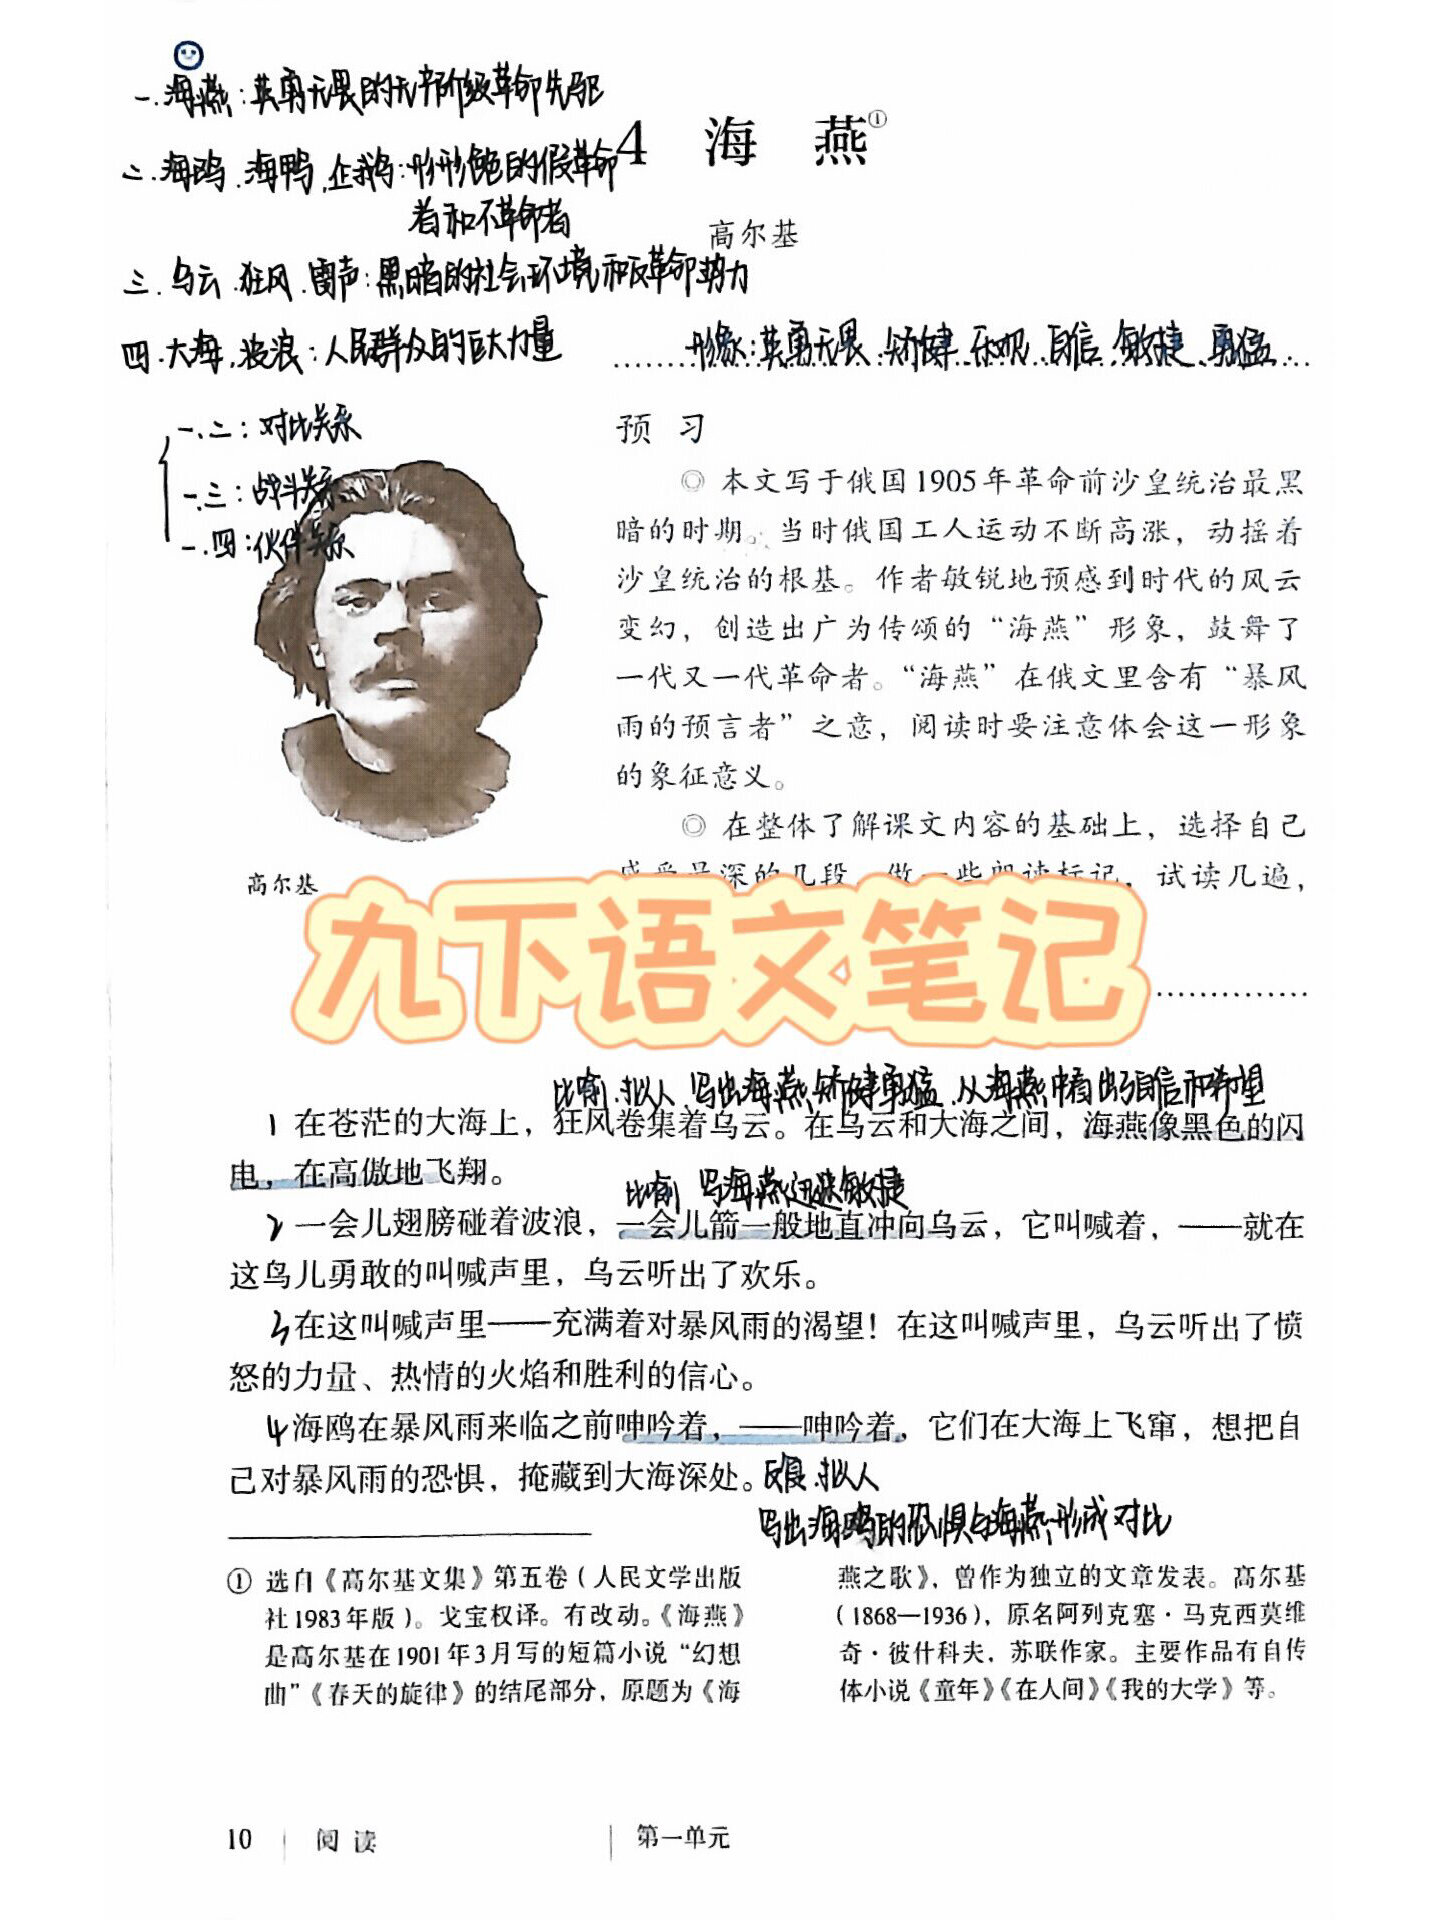 一.海燕:英勇无畏的无产阶级革命先驱
4 海 燕①
二.海鸥.海鸭.企鹅:形形色色的假革命
者和不革命者
高尔基
三.乌云.狂风.雷声:黑暗的社会环境和反革命势力
四.大海.波浪:人民群众的巨大力量
形象:英勇无畏.矫健.乐观.自信.敏捷.勇猛
一.二:对比关系
一.三:战斗关系
一.四:伙伴关系
高尔基
预 习
◎ 本文写于俄国1905年革命前沙皇统治最黑
暗的时期。当时俄国工人运动不断高涨，动摇着
沙皇统治的根基。作者敏锐地预感到时代的风云
变幻，创造出广为传颂的“海燕”形象，鼓舞了
一代又一代革命者。“海燕”在俄文里含有“暴风
雨的预言者”之意，阅读时要注意体会这一形象
的象征意义。
◎ 在整体了解课文内容的基础上，选择自己
深的几段，做一些朗读标记，试读几遍，
九下语文笔记
比喻.拟人.写出海燕矫健勇猛.从海燕中看出了自信和希望
1 在苍茫的大海上，狂风卷集着乌云。在乌云和大海之间，海燕像黑色的闪
电，在高傲地飞翔。
比喻 写海燕迅速敏捷
2 一会儿翅膀碰着波浪，一会儿箭一般地直冲向乌云，它叫喊着，——就在
这鸟儿勇敢的叫喊声里，乌云听出了欢乐。
3 在这叫喊声里——充满着对暴风雨的渴望！在这叫喊声里，乌云听出了愤
怒的力量、热情的火焰和胜利的信心。
4 海鸥在暴风雨来临之前呻吟着，——呻吟着，它们在大海上飞窜，想把自
己对暴风雨的恐惧，掩藏到大海深处。反复.拟人
写出海鸥的恐惧与海燕形成对比
① 选自《高尔基文集》第五卷（人民文学出版
社1983年版）。戈宝权译。有改动。《海燕》
是高尔基在1901年3月写的短篇小说“幻想
曲”《春天的旋律》的结尾部分，原题为《海
燕之歌》，曾作为独立的文章发表。高尔基
（1868—1936），原名阿列克塞·马克西莫维
奇·彼什科夫，苏联作家。主要作品有自传
体小说《童年》《在人间》《我的大学》等。
10 阅 读 第一单元